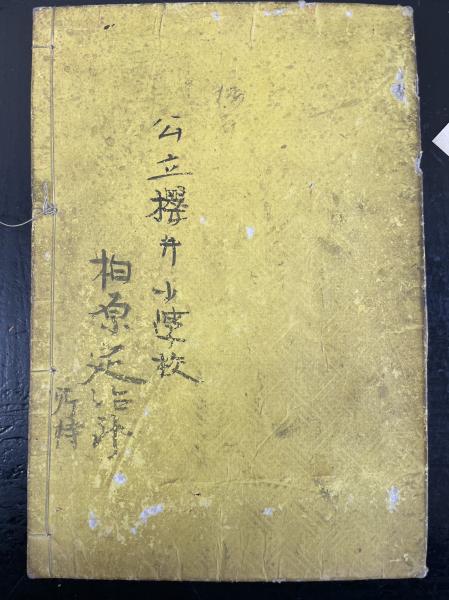 公立櫻井小學校
柏原延治郎
所持